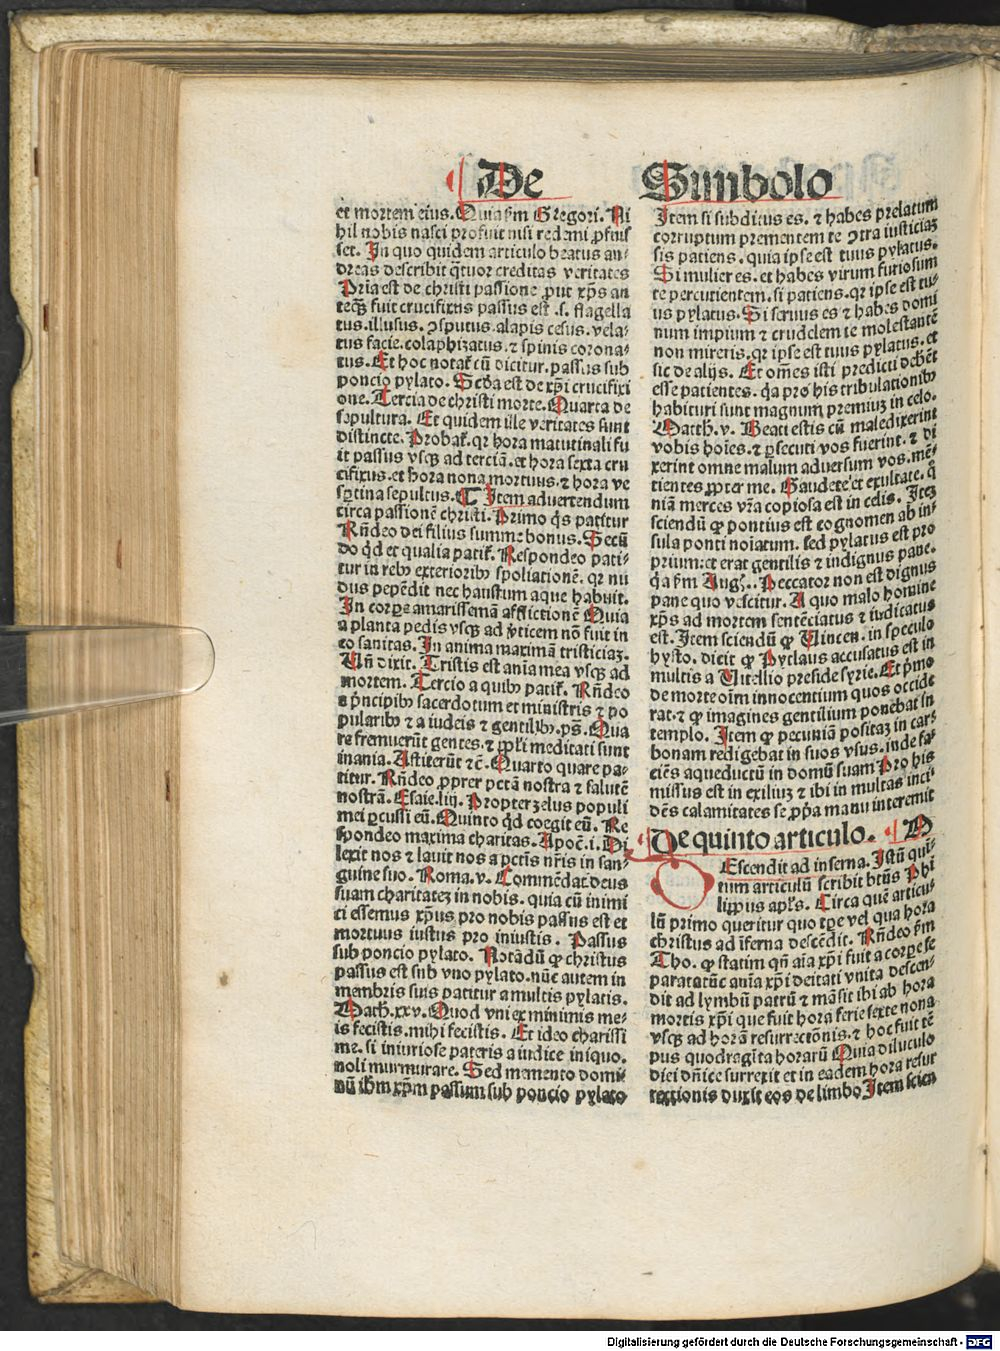 De Simbolo
et mortem eius. Quia ẜm Gregori. Ni
hil nobis nasci profuit nisi redemi ꝓfuis
set. In quo quidem articulo beatus an⸗
dreas describit q̄tuor creditas veritates
Pria est de christi passione ꝓut xp̄s an
teqꝫ fuit crucifixus passus est .s. flagella
tus. illusus. ꝯsputus. alapis cesus. vela⸗
tus facie. colaphizatus. ⁊ spinis corona⸗
tus. Et hoc notat᷑ cū dicitur. passus sub
poncio pylato. Scd̓a est de xp̄i crucifixi
one. Tercia de christi morte. Quarta de
sepultura. Et quidem ille veritates sunt
distincte. Probat᷑. qꝛ hora matutinali fu
it passus vsqꝫ ad terciā. et hora sexta cru
cifixus. et hora nona mortuus. ⁊ hora ve
sꝑtina sepultus. ¶ Item aduertendum
circa passionē christi. Primo q̇s patitur
Rn̄deo dei filius summe bonus. Secū
do q̇d et qualia patit᷑. Respondeo pati⸗
tur in rebꝰ exterioribꝰ spoliationē. qꝛ nu
dus pepēdit nec haustum aque habuit.
In corꝑe amarissemā afflictionē Quia
a planta pedis vsqꝫ ad v̓ticem nō fuit in
eo sanitas. In anima maximā tristiciaꝫ.
Vn̄ dixit. Tristis est aīa mea vsqꝫ ad
mortem. Tercio a quibꝰ patit᷑. Rn̄deo
a p̓ncipibꝰ sacerdotum et ministris ⁊ po
pularibꝰ ⁊ a iudeis ⁊ gentilibꝰ. ps̄. Qua
re fremuerūt gentes. ⁊ pp̄l̓i meditati sunt
inania. Astiterūt ⁊c̄. Quarto quare pa⸗
titur. Rn̄deo ꝓpter pctā nostra ⁊ salutē
nostrā. Esaie. liij. Propter zelus populi
mei ꝑcussi eū. Quinto q̇d coegit eū. Re
spondeo maxima charitas. Apoc̄. i. Di
lexit nos ⁊ lauit nos a pctīs nr̄is in san⸗
guine suo. Roma. v. Commēdat deus
suam charitateꝫ in nobis. quia cū inimi
ci essemus xp̄us pro nobis passus est et
mortuus iustus pro iniustis. Passus
sub poncio pylato. Notādū ꝙ christus
passus est sub vno pylato. nūc autem in
membris suis patitur a multis pylatis.
Math. xxv. Quod vni ex minimis me⸗
is fecistis. mihi fecistis. Et ideo charissi
me. si iniuriose pateris a iudice iniquo.
noli murmurare. Sed memento domi⸗
nū ihm xp̄m passum sub poncio pylato
Item si subditus es. ⁊ habes prelatum
corruptum prementem te ꝯtra iusticiaꝫ
sis patiens. quia ipse est tuus pylatus.
Si mulier es. et habes virum furiosum
te percutientem. si patiens. qꝛ ipse est tu⸗
us pylatus. Si seruus es ⁊ habes domi
num impium ⁊ crudelem te molestantē
non mireris. qꝛ ipse est tuus pylatus. et
sic de alijs. Et om̄es isti predicti deb̄et
esse patientes. q̇a pro his tribulationibꝰ
habituri sunt magnum premiuꝫ in celo.
Matth̄. v. Beati estis cū maledixerint
vobis hoīes. ⁊ ꝑsecuti vos fuerint. ⁊ di
xerint omne malum aduersum vos. mē⸗
tientes ꝓpter me. Gaudete et exultate. q̄
niā merces vr̄a copiosa est in celis. Iteꝫ
sciendū ꝙ pontius est cognomen ab in⸗
sula ponti noīatum. sed pylatus est pro
prium: et erat gentilis ⁊ indignus pane.
q̇a ẜm Augȝ.. Peccator non est dignus
pane quo vescitur. A quo malo homine
xp̄s ad mortem sentētiatus ⁊ iudicatus
est. Item sciendū ꝙ Vincen. in speculo
hysto. dicit ꝙ Pylatus accusatus est in
multis a Vitellio preside syrie. Et p̓mo
de morte oīm innocentium quos occide
rat. ⁊ ꝙ imagines gentilium ponebat in
templo. Item ꝙ pecuniā positaꝫ in car⸗
bonam redigebat in suos vsus. inde fa⸗
ciēs aqueductū in domū suam Pro his
missus est in exiliuꝫ ⁊ ibi in multas inci⸗
dēs calamitates se ꝓp̓a manu interemit
De quinto articulo. D
Escendit ad inferna. Istū qui⸗
tum articulū scribit btūs Phi
lippus apl̓s. Circa quē articu⸗
lū primo queritur quo tꝑe vel qua hora
christus ad īferna descēdit. Rn̄deo ẜm
Tho. ꝙ statim qn̄ aīa xp̄i fuit a corꝑe se
parata tūc aīa xp̄i deitati vnita descen⸗
dit ad lymbū patrū ⁊ māsit ibi ab hora
mortis xp̄i que fuit hora ferie sexte nona
vsqꝫ ad horā resurrectiōnis. ⁊ hoc fuit tē
pus quadragīta horarū Quia diluculo
diei dn̄ice surrexit et in eadem hora resur
rectionis duxit eos de limbo Item scien
Digitalisierung gefördert durch die Deutsche Forschungsgemeinschaft - DFG